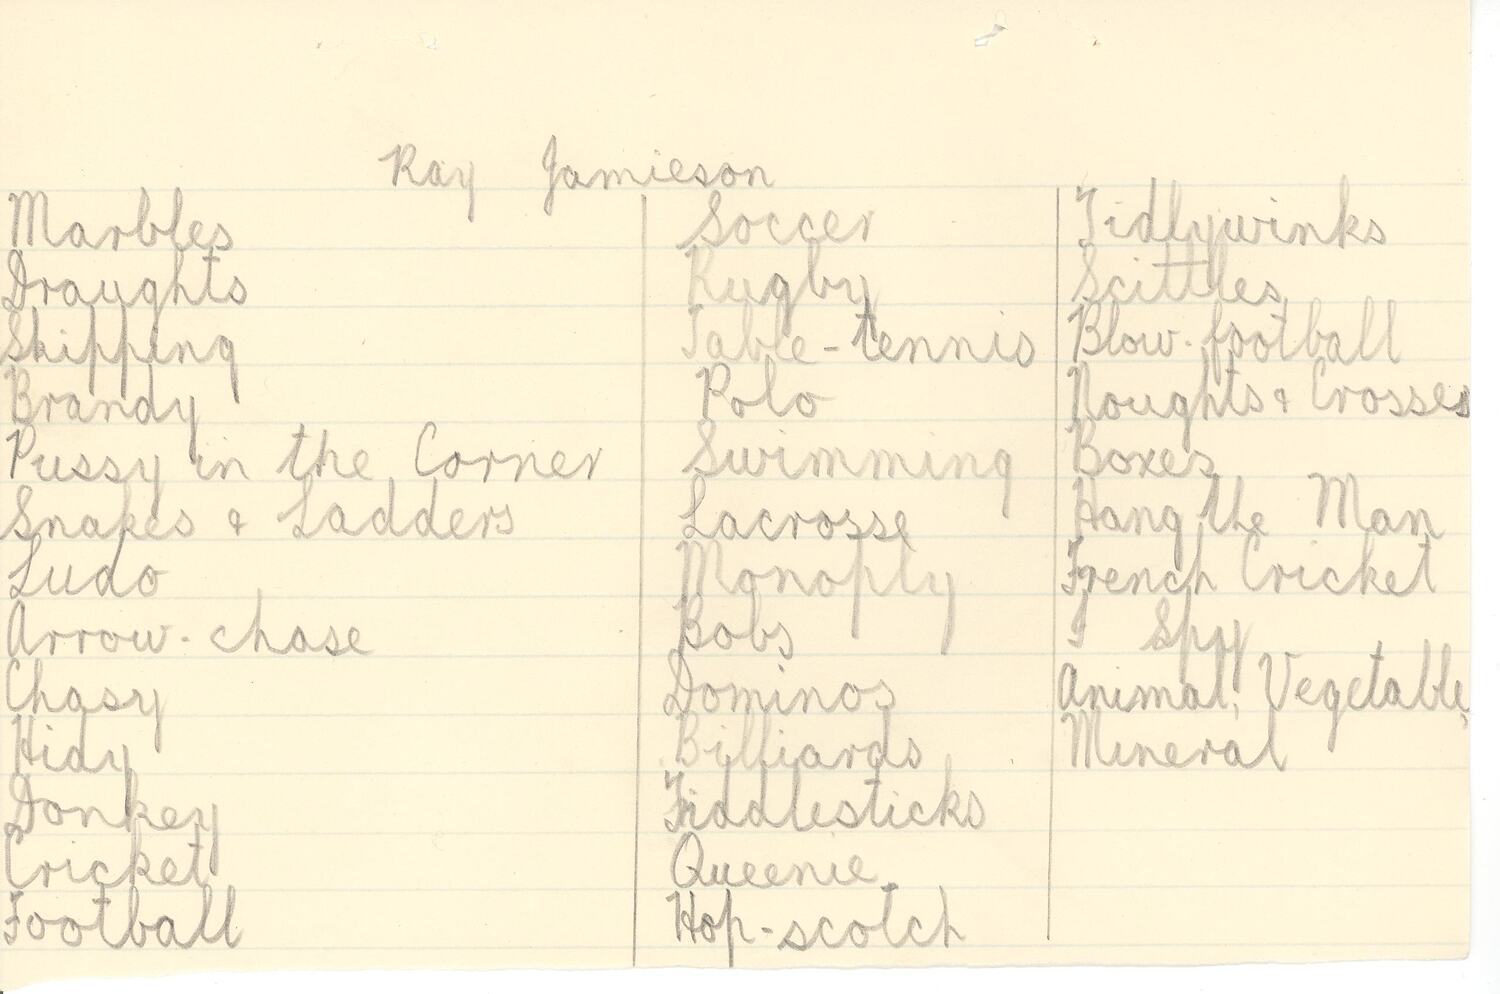 Ray Jamieson
Marbles
Draughts
Skipping
Brandy
Pussy in the Corner
Snakes & Ladders
Ludo
Arrow-chase
Chasy
Hidy
Donkey
Cricket
Football
Soccer
Rugby
Table-tennis
Polo
Swimming
Lacrosse
Monoply
Bobs
Dominos
Billiards
Fiddlesticks
Queenie
Hop-scotch
Tidlywinks
Scittles
Blow-football
Noughts & Crosses
Boxes
Hang the Man
French Cricket
I Spy
Animal, Vegetable,
Mineral